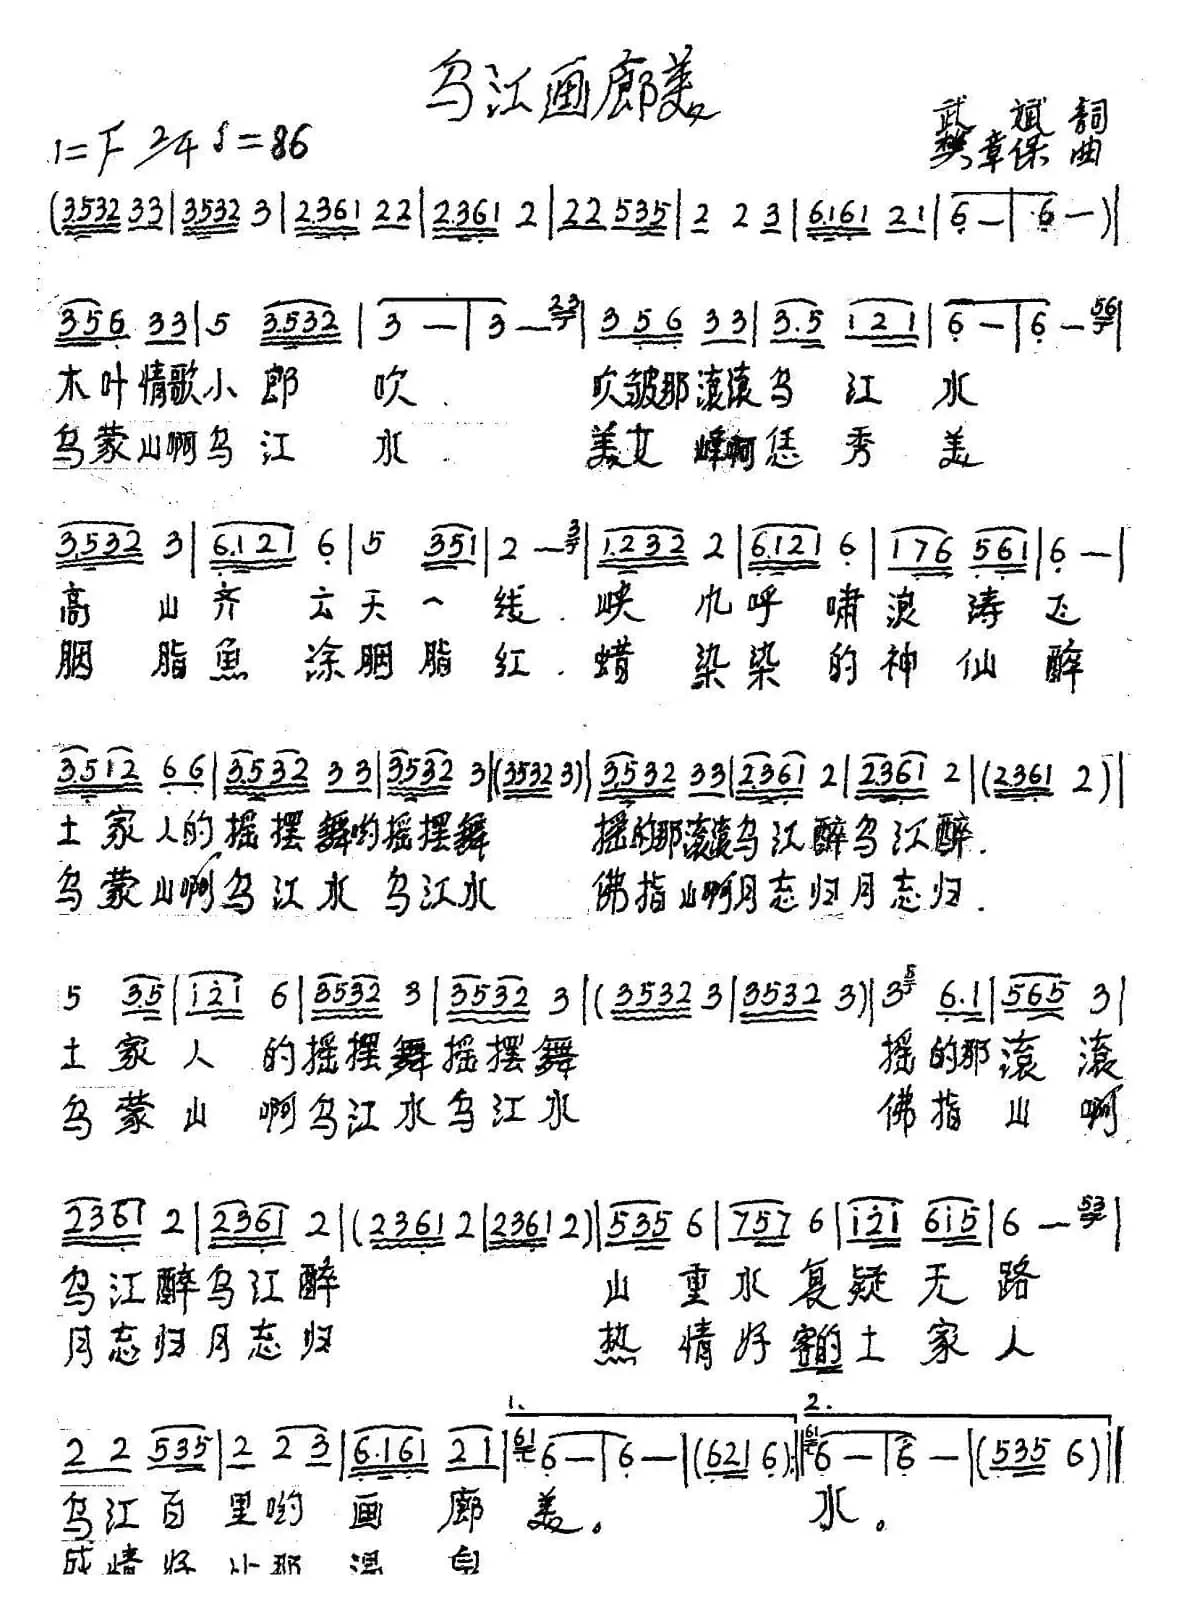 乌江画廊美
1=F 2/4 ♩=86
武斌 詞
樊章保 曲
(3.532 33|3532 3|2.361 22|2.361 2|22 535|2 2 3|6.161 21|6—|6—)|
356 33|5 3532|3—|3—23|3 56 33|3.5 121|6—|6—56|
木叶情歌小郎吹. 吹皱那滚滚乌江水
乌蒙山啊乌江水. 美女峰啊恁秀美
3.532 3|6.121 6|5 351|2—3|1.232 2|6.121 6|176 561|6—|
高山齐云天一线. 峡九呼啸浪涛飞
胭脂魚涂胭脂红. 蜡染染的神仙醉
3.512 66|3.532 33|3532 3|(3532 3)|3532 33|2361 2|2361 2|(2361 2)|
土家人的摇摆舞哟摇摆舞 摇的那滚滚乌江醉乌江醉.
乌蒙山啊乌江水 乌江水 佛指山啊月忘归月忘归.
5 3.5|121 6|3532 3|3532 3|(3532 3|3532 3)|3 5 6.1|565 3|
土家人的摇摆舞摇摆舞 摇的那滚滚
乌蒙山啊乌江水乌江水 佛指山啊
2361 2|2361 2|(2361 2|2361 2)|535 6|757 6|121 615|6—53|
乌江醉乌江醉 山重水复疑无路
月忘归月忘归 热情好客的土家人
1. 2.
2 2 535|2 2 3|6.161 21|61 6—|6—|(621 6):|61 6—|6—|(535 6)||
乌江百里哟画廊美。 水。